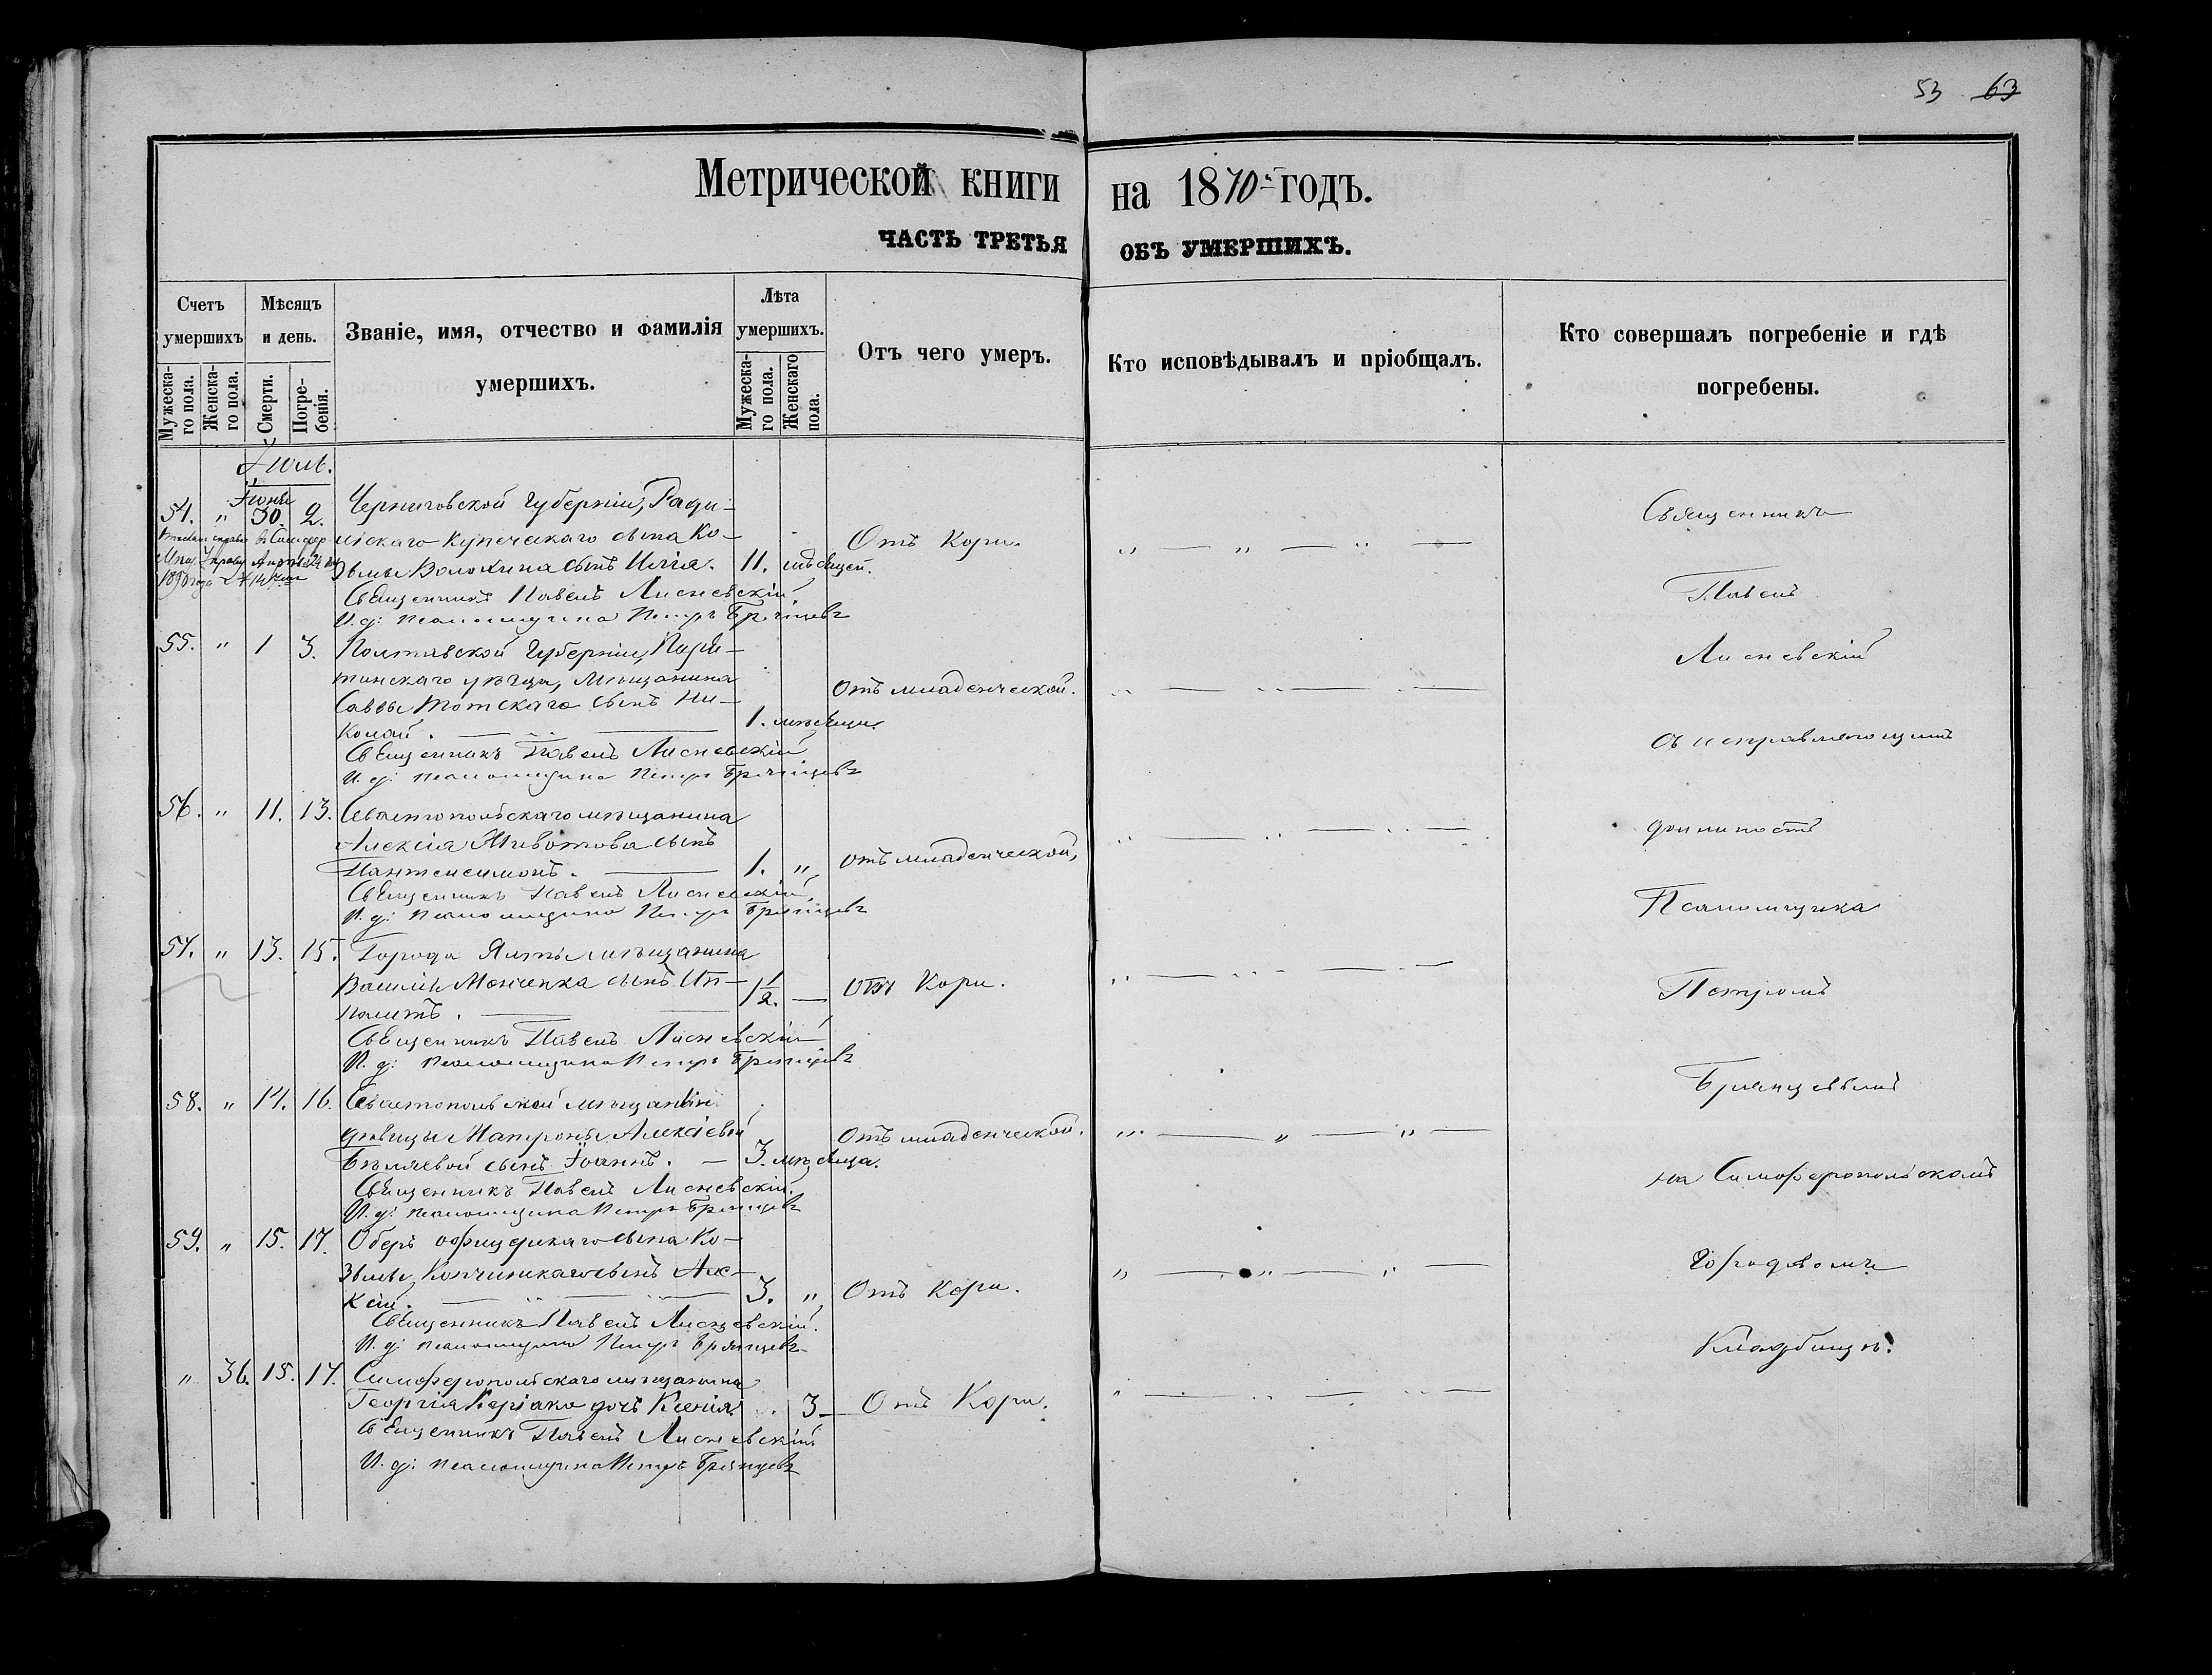 53 63
Метрической книги на 1870 годъ.
ЧАСТЬ ТРЕТЬЯ ОБЪ УМЕРШИХЪ.
Счетъ умершихъ
Мужеска-го пола.
Женска-го пола.
Мѣсяцъ и день.
Смерти.
Погре-бенія.
Званіе, имя, отчество и фамилія умершихъ.
Лѣта умершихъ.
Мужеска-го пола.
Женскаго пола.
Отъ чего умеръ.
Кто исповѣдывалъ и пріобщалъ.
Кто совершалъ погребеніе и гдѣ погребены.
Іюль.
Іюня
54. " 30. 2. Черниговской Губерніи, Ради-
скаго купеческаго сына Ко- Отъ Кори. " — " — " —
зьмы Волохина сынъ Илія. 11. мѣсяцей.
1890 года
Священникъ Павелъ Лисневскій
И. д: псаломщика Петръ Брянцевъ
55. " 1 3. Полтавской Губерніи, Пиря-
тинскаго уѣзда, Мѣщанина Отъ младенческой. " — " — " —
Саввы Тотскаго сынъ Ни-
колай. 1. мѣсяца.
Священникъ Павелъ Лисневскій
И. д: псаломщика Петръ Брянцевъ
56. " 11. 13. Севастопольскаго мѣщанина
Алексія Животова сынъ
Пантелеимонъ. 1. " отъ младенческой,
Священникъ Павелъ Лисневскій,
И. д: псаломщика Петръ Брянцевъ
57. " 13. 15. Города Ялты мѣщанина
Василія Мончепка сынъ Ип-
политъ. 1 1/2. — отъ Кори.
Священникъ Павелъ Лисневскій
И. д: псаломщика Петръ Брянцевъ
58. " 14. 16. Севастопольской мѣщанки
дѣвицы Матроны Алексіевой Отъ младенческой. " — " — " —
Бѣляевой сынъ Іоаннъ. — 3. мѣсяца.
Священникъ Павелъ Лисневскій.
И. д: псаломщика Петръ Брянцевъ
59. " 15. 17. Оберъ офицерскаго сына Ко-
зьмы сынъ Алек-
сій. 3. " Отъ Кори.
Священникъ Павелъ Лисневскій.
И. д: псаломщика Петръ Брянцевъ
" 36. 15. 17. Симферопольскаго мѣщанина
Георгія Керіако дочь Ксенія. 3 — Отъ Кори.
Священникъ Павелъ Лисневскій
И. д: псаломщика Петръ Брянцевъ
Священникъ
Павелъ
Лисневскій
съ исправляющимъ
должность
Псаломщика
Петромъ
Брянцевымъ
на Симферопольскомъ
Городовомъ
Кладбищѣ.